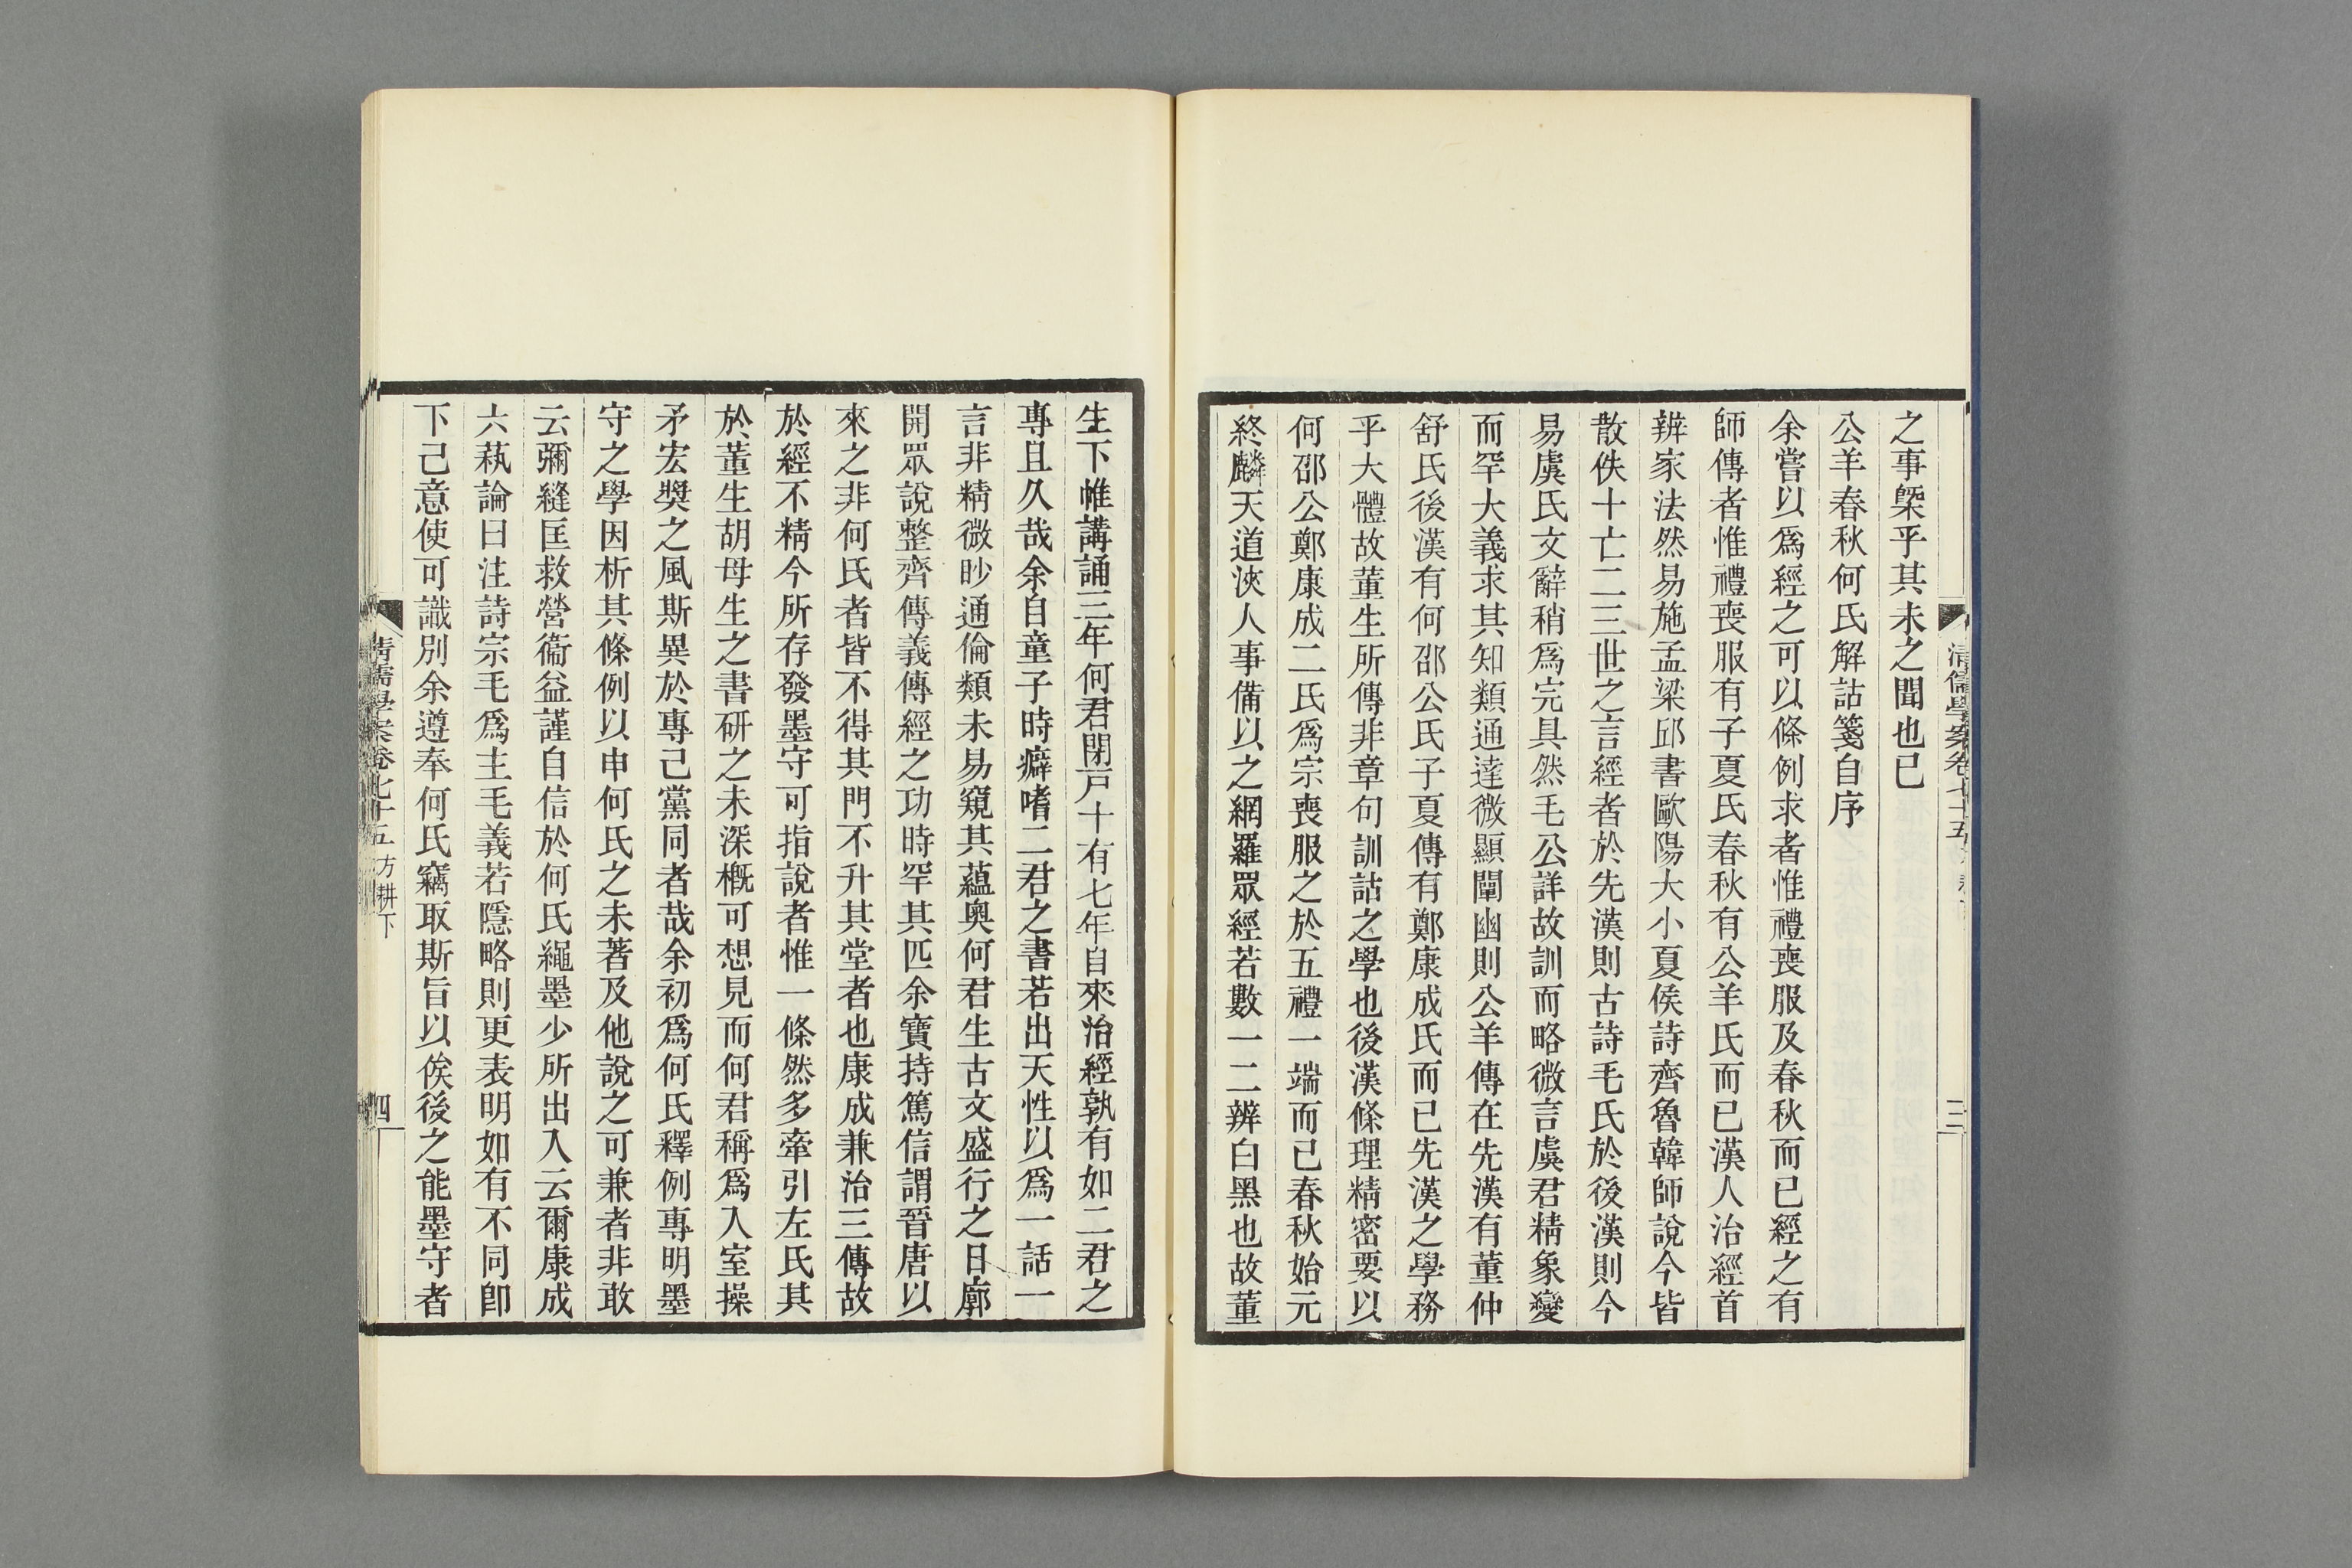 之事槩乎其未之聞也已
公羊春秋何氏解詁箋自序
余嘗以爲經之可以條例求者惟禮喪服及春秋而已經之有
師傳者惟禮喪服有子夏氏春秋有公羊氏而已漢人治經首
辨家法然易施孟梁邱書歐陽大小夏侯詩齊魯韓師說今皆
散佚十亡二三世之言經者於先漢則古詩毛氏於後漢則今
易虞氏文辭稍爲完具然毛公詳故訓而略微言虞君精象變
而罕大義求其知類通達微顯闡幽則公羊傳在先漢有董仲
舒氏後漢有何邵公氏子夏傳有鄭康成氏而已先漢之學務
乎大體故董生所傳非章句訓詁之學也後漢條理精密要以
何邵公鄭康成二氏爲宗喪服之於五禮一端而已春秋始元
終麟天道浹人事備以之網羅眾經若數一二辨白黑也故董
清儒學案卷七十五
三
生下帷講誦三年何君閉戸十有七年自來治經孰有如二君之
專且久哉余自童子時癖嗜二君之書若出天性以爲一話一
言非精微眇通倫類未易窺其蘊奧何君生古文盛行之日廓
開眾說整齊傳義傳經之功時罕其匹余寶持篤信謂晉唐以
來之非何氏者皆不得其門不升其堂者也康成兼治三傳故
於經不精今所存發墨守可指說者惟一條然多牽引左氏其
於董生胡母生之書研之未深槪可想見而何君稱爲入室操
矛宏獎之風斯異於專己黨同者哉余初爲何氏釋例專明墨
守之學因析其條例以申何氏之未著及他說之可兼者非敢
云彌縫匡救營衞益謹自信於何氏繩墨少所出入云爾康成
六蓺論曰注詩宗毛爲主毛義若隱略則更表明如有不同卽
下己意使可識別余遵奉何氏竊取斯旨以俟後之能墨守者
清儒學案卷七十五 方耕下
四